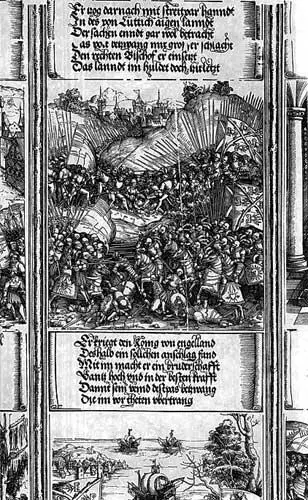 Er zog darnach mit streitpar hanndt
In des von Luttich aigen lanndt
Der sachen enndt gar wol betracht
Das volt betzwang mit grosser schlacht
Den rechten Bischof er einsetzt
Das lanndt im huldet doch zuletzt
Er kriegt den König von engelland
Deshalb ein solichen anschlag fand
Mit im macht er ein bruderschafft
Gantz hoch vnd in der besten crafft
Damit sein veind destpas betzwang
Die im vor theten vbertrang